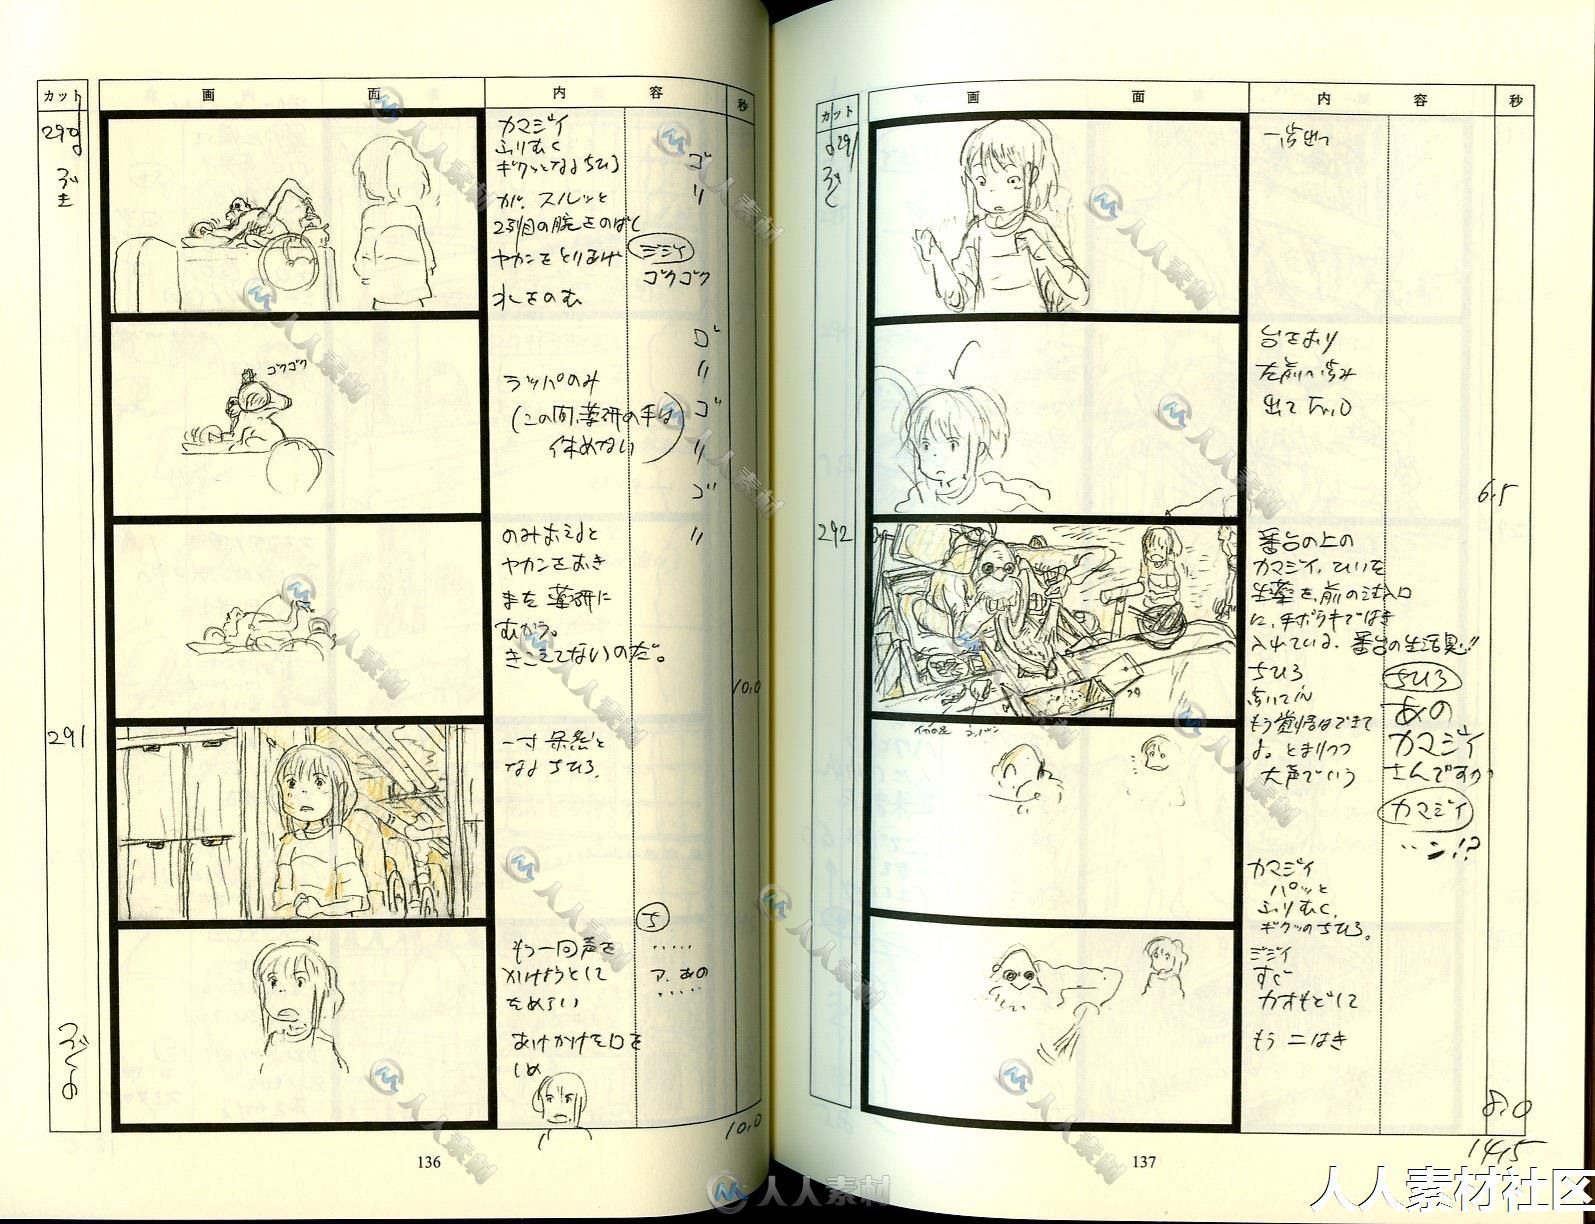 カット
画
面
内
容
秒
290
つづき
カマジイ
ふりむく
ギクッとなるちひろ
が、スルッと
2列目の腕をのばし
ヤカンをとりあげ
水をのむ
ジジイ
ゴクゴク
ゴ
リ
ゴクゴク
ラッパのみ
(この間、薬研の手は
休めない)
ゴ
リ
ゴ
リ
ゴ
リ
のみおえると
ヤカンをおき
また薬研に
むかう。
きこえてないのだ。
10.0
291
一寸呆然と
なるちひろ、
もう一回声を
かけようとして
ためらい
あけかけた口を
しめ
ち
‥‥‥
ア、あの
‥‥‥
つづく
10.0
136
カット
画
面
内
容
秒
291
一歩出っ
台をおり
左前へ歩み
出て
6.5
292
番台の上の
カマジイ、ひいた
生薬を、前の注入口
に、手ボウキではき
入れている、番台の生活臭!!
ちひろ
歩いてくる
もう覚悟はできて
る。とまりつつ
大声でいう
ちひろ
あの
カマジイ
さんですか
カマジイ
ン!?
カマジイ
パッと
ふりむく、
ギクッのちひろ。
ジジイ
すぐ
カオもどして
もう一はき
8.0
14.5
137
人人素材
人人素材社区